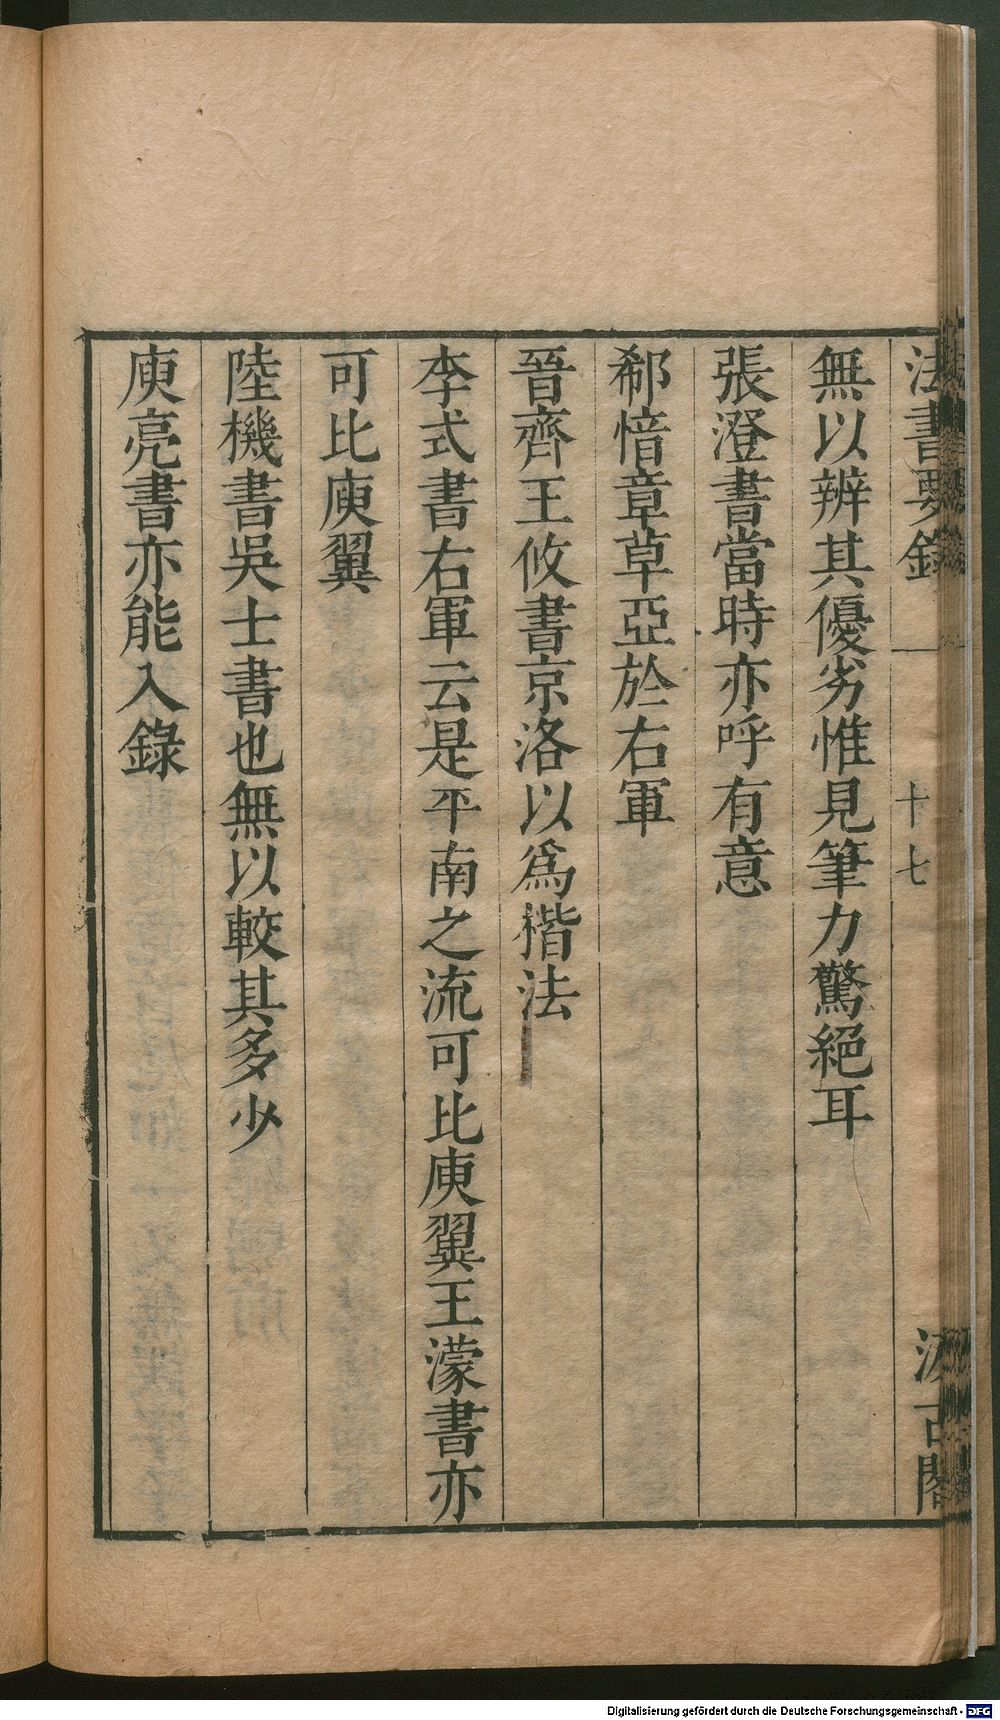 法書要錄 一 十七 汲古閣
無以辨其優劣惟見筆力驚絕耳
張澄書當時亦呼有意
郗愔章草亞於右軍
晉齊王攸書京洛以爲楷法
李式書右軍云是平南之流可比庾翼王濛書亦
可比庾翼
陸機書吳士書也無以較其多少
庾亮書亦能入錄
Digitalisierung gefördert durch die Deutsche Forschungsgemeinschaft - DFG